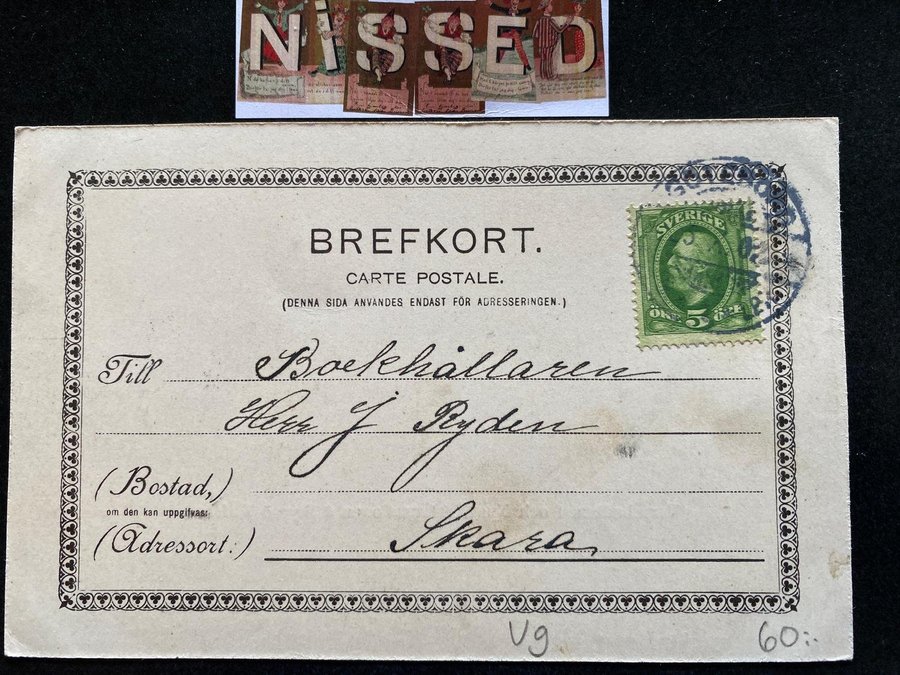 NISSED
BREFKORT.
CARTE POSTALE.
(DENNA SIDA ANVÄNDES ENDAST FÖR ADRESSERINGEN.)
SVERIGE
ÖRE 5 ÖRE
Till Bokhållaren
Herr J Ryden
(Bostad,)
om den kan uppgifvas:
(Adressort:) Skara
Vg 60:-